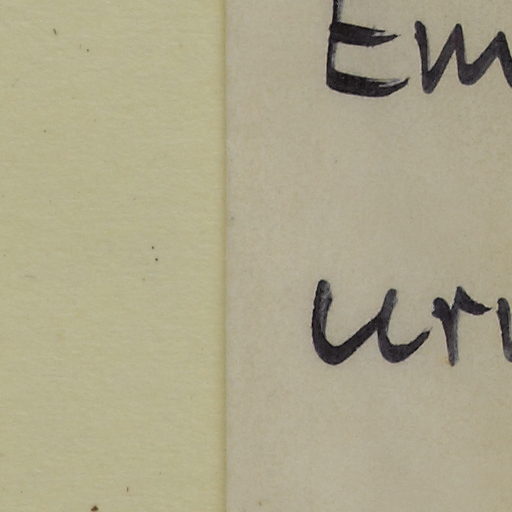 Em
ur